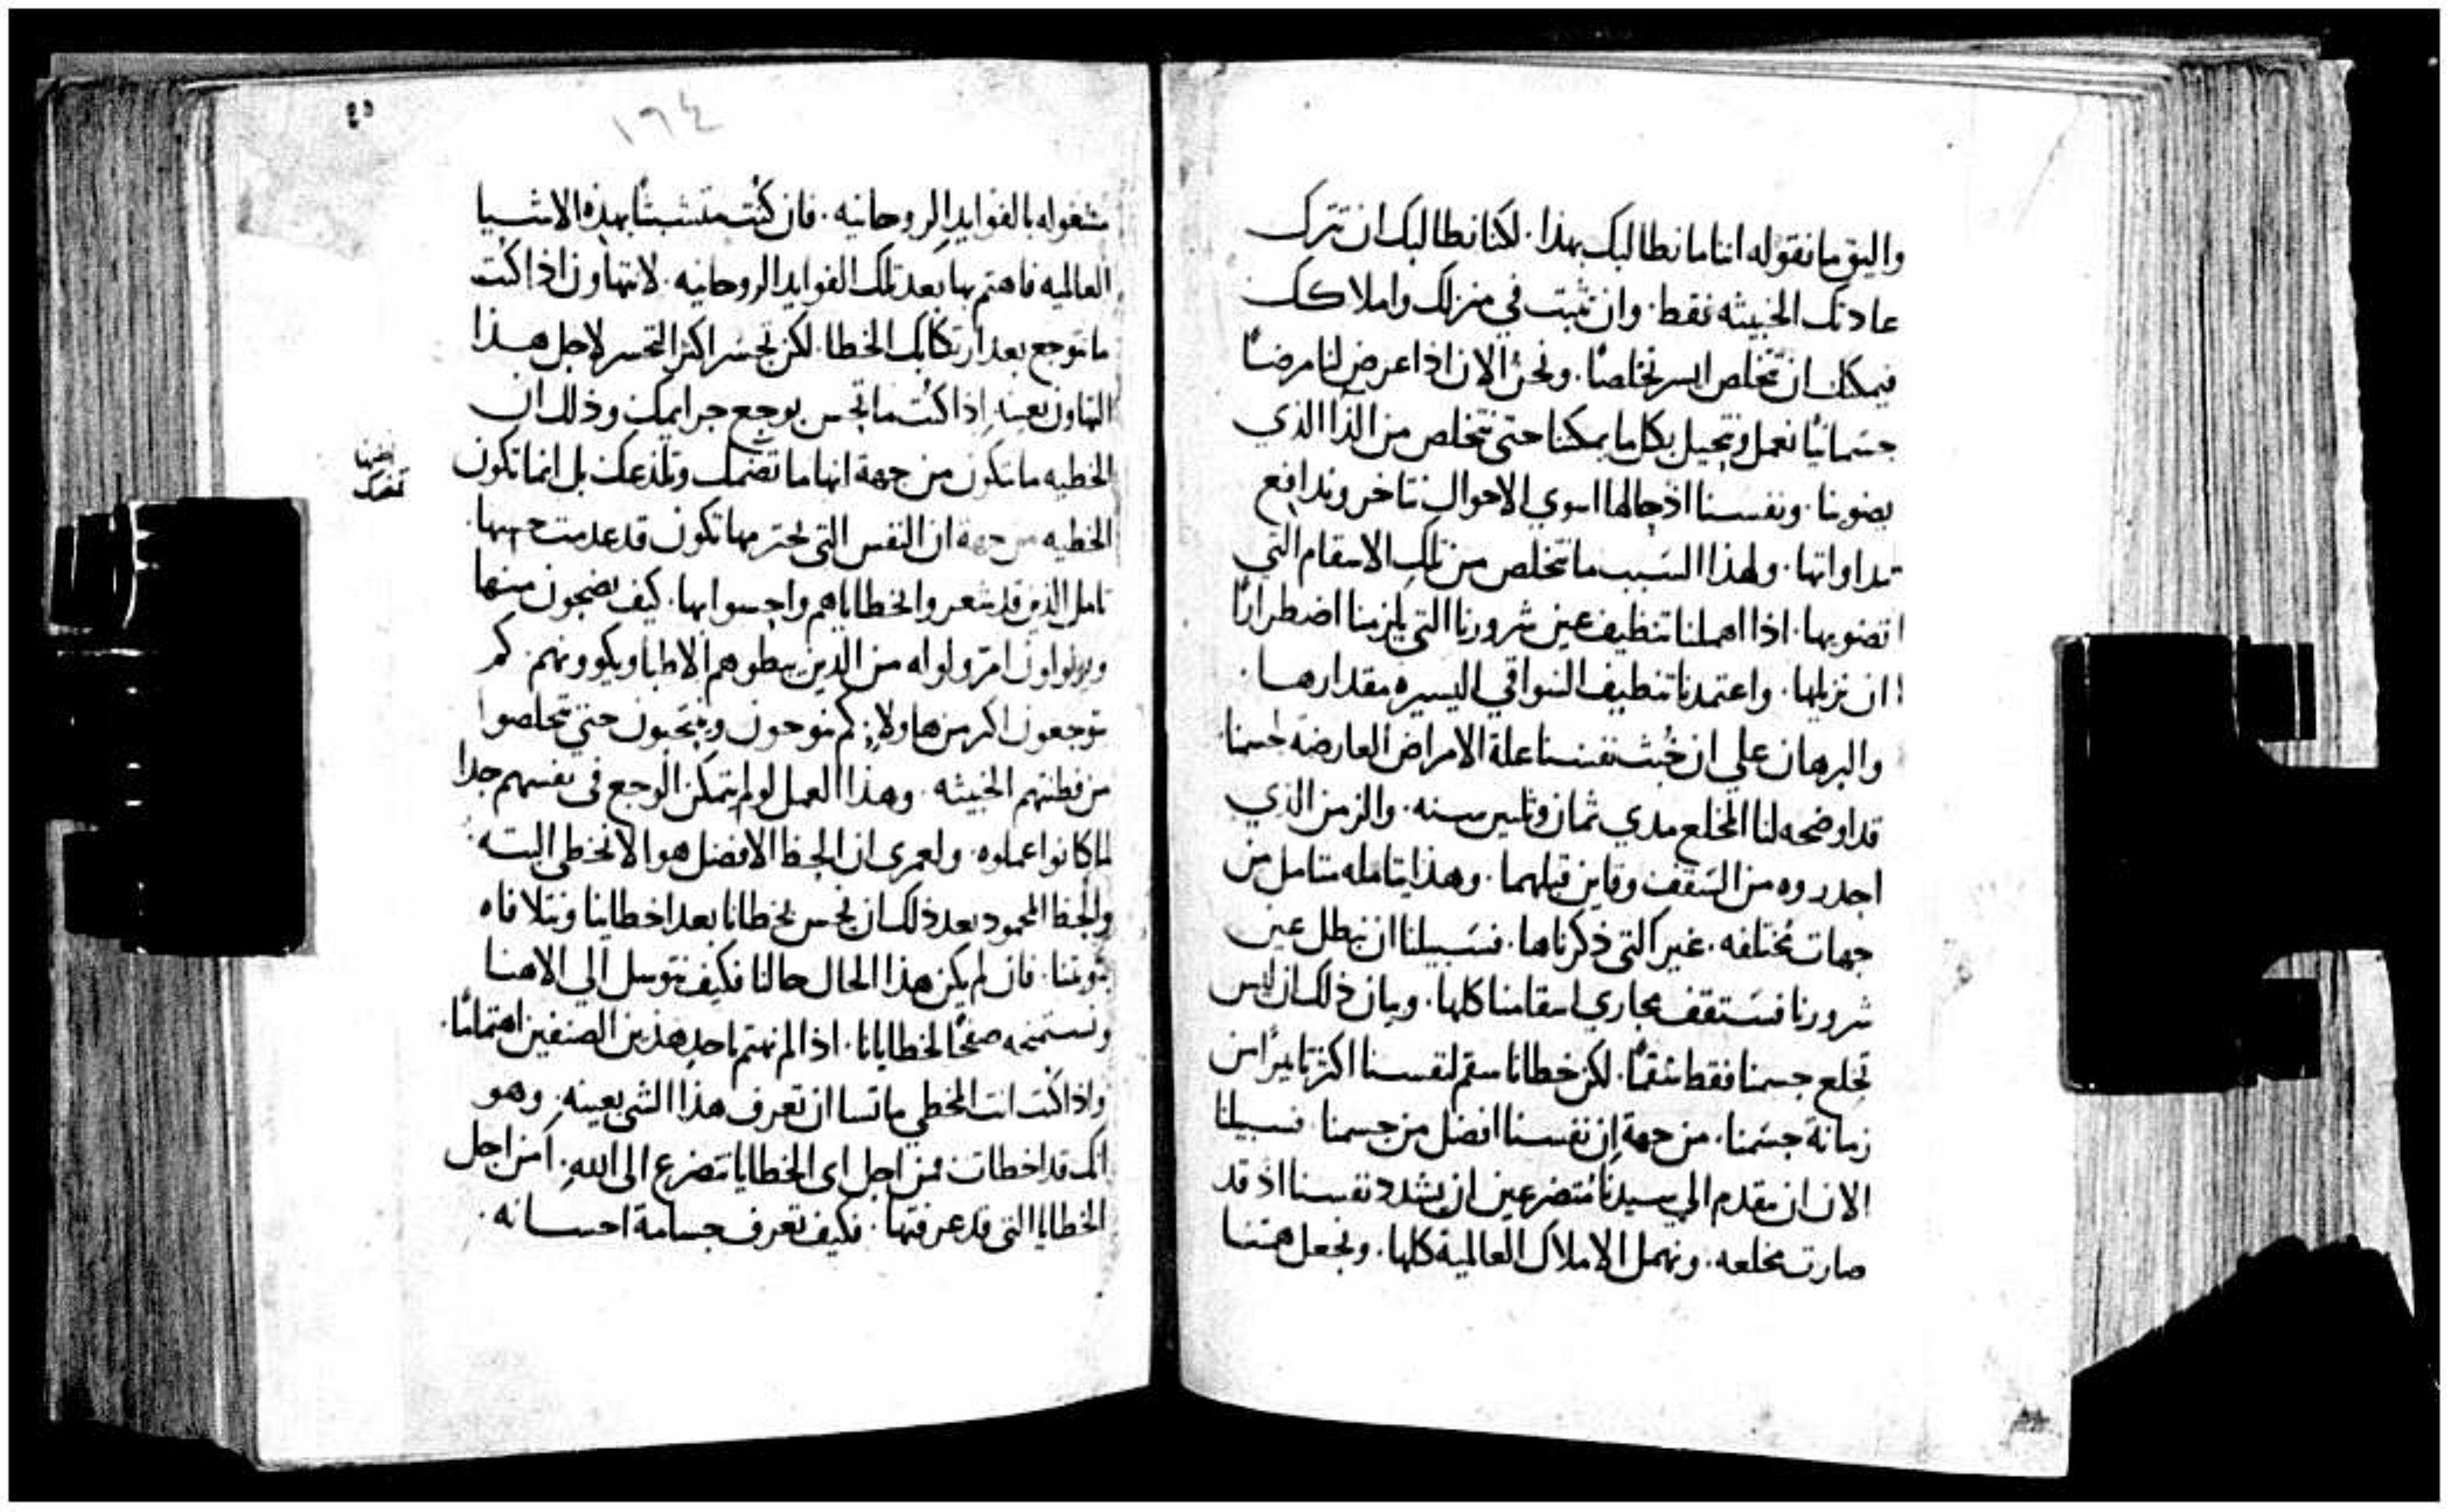 واليق ما نقوله اننا ما نطالبك بهذا. لكنا نطالبك ان تترك
عادتك الخبيثه فقط. وان تثبت في منزلك واملاكك
فيمكنك ان تتخلص ايسر تخلصًا. ونحن الان اذا عرض لنا مرضًا
جسمانيًا نعمل ونتحيل بكل ما يمكننا حتى نتخلص من الذا الذي
يضوينا. ونفسنا اذ حالها اسوي الاحوال نتاخر وندافع
مداواتها. ولهذا السبب ما نتخلص من تلك الاسقام التي
تضنويها. اذا اهملنا تنظيف عين شرورنا التي يلزمنا اضطرارًا
ان نزيلها. واعتمدنا تنظيف السواقي اليسيره مقدارها.
والبرهان علي ان خُبث نفسنا علة الامراض العارضه لجسمنا
قد اوضحه لنا المخلع مدي ثمان وثلثين سنه. والزمن الذي
اجدروه من السقف وقاين قبلهما. وهذا يتامله متامل من
جهات مُختلفه. غير التي ذكرناها. فسبيلنا ان نبطل عين
شرورنا فستقف مجاري اسقامنا كلها. وبيان ذلك ان ليس
تخلع جسمنا فقط سُقمًا. لكن خطانا سقم لنفسنا اكثر تاثيرًا من
زمانة جسمنا. من جهة ان نفسنا افضل من جسمنا فسبيلنا
الان ان نتقدم الي سيدنا مُتضرعين ان يشدد نفسنا اذ قد
صارت مخلعه. ونهمل الاملاك العالمية كلها. ونجعل همتنا
٤٥
١٦٤
مشغوله بالفوايد الروحانيه. فان كُنت متشبثًا بهذه الاشيا
العالميه فاهتم بها بعد تلك الفوايد الروحانيه. لا تتهاون اذا كُنت
ما توجع بعد ارتكابك الخطا. لكن تحسر اكثر التحسر لاجل هذا
التهاون بعينه اذا كُنت ما تحس بوجع جرايمك وذلك ان
الخطيه ما تكون من جهة انها ما تضمك وتلذعك بل انما تكون
الخطيه من جهة ان النفس التي تجترمها تكون قد عدمت حسها.
تامل الذين قد شعروا بخطاياهم واحسوا بها. كيف يضجون منها
ويولولون امرّ ولوله من الذين يبطوهم الاطبا ويكوونهم. كم
يتوجعون اكثر من هاولاي. كم ينوحون وينتحبون حتي تخلصوا
من فطنتهم الخبيثه. وهذا العمل لو لم يتمكن الوجع في نفسهم جدا
لما كانوا عملوه. ولعمري ان الحظ الافضل هو الا نخطي البته.
والحظ المحمود بعد ذلك ان نحس بخطانا بعد اخطاينا ونتلافاه
بتوبتنا. فان لم يكن هذا الحال حالنا فكيف نتوسل الي الاهنا
ونستمنحه صفحًا لخطايانا. اذا لم نهتم باحد هذين الصنفين اهتمامًا.
واذا كُنت انت المخطي ما تشا ان تعرف هذا الشي بعينه. وهو
انك قد اخطات فمن اجل اي الخطايا تتضرع الي الله. امن اجل
الخطايا التي قد عرفتها. فكيف تعرف جسامة احسانه.